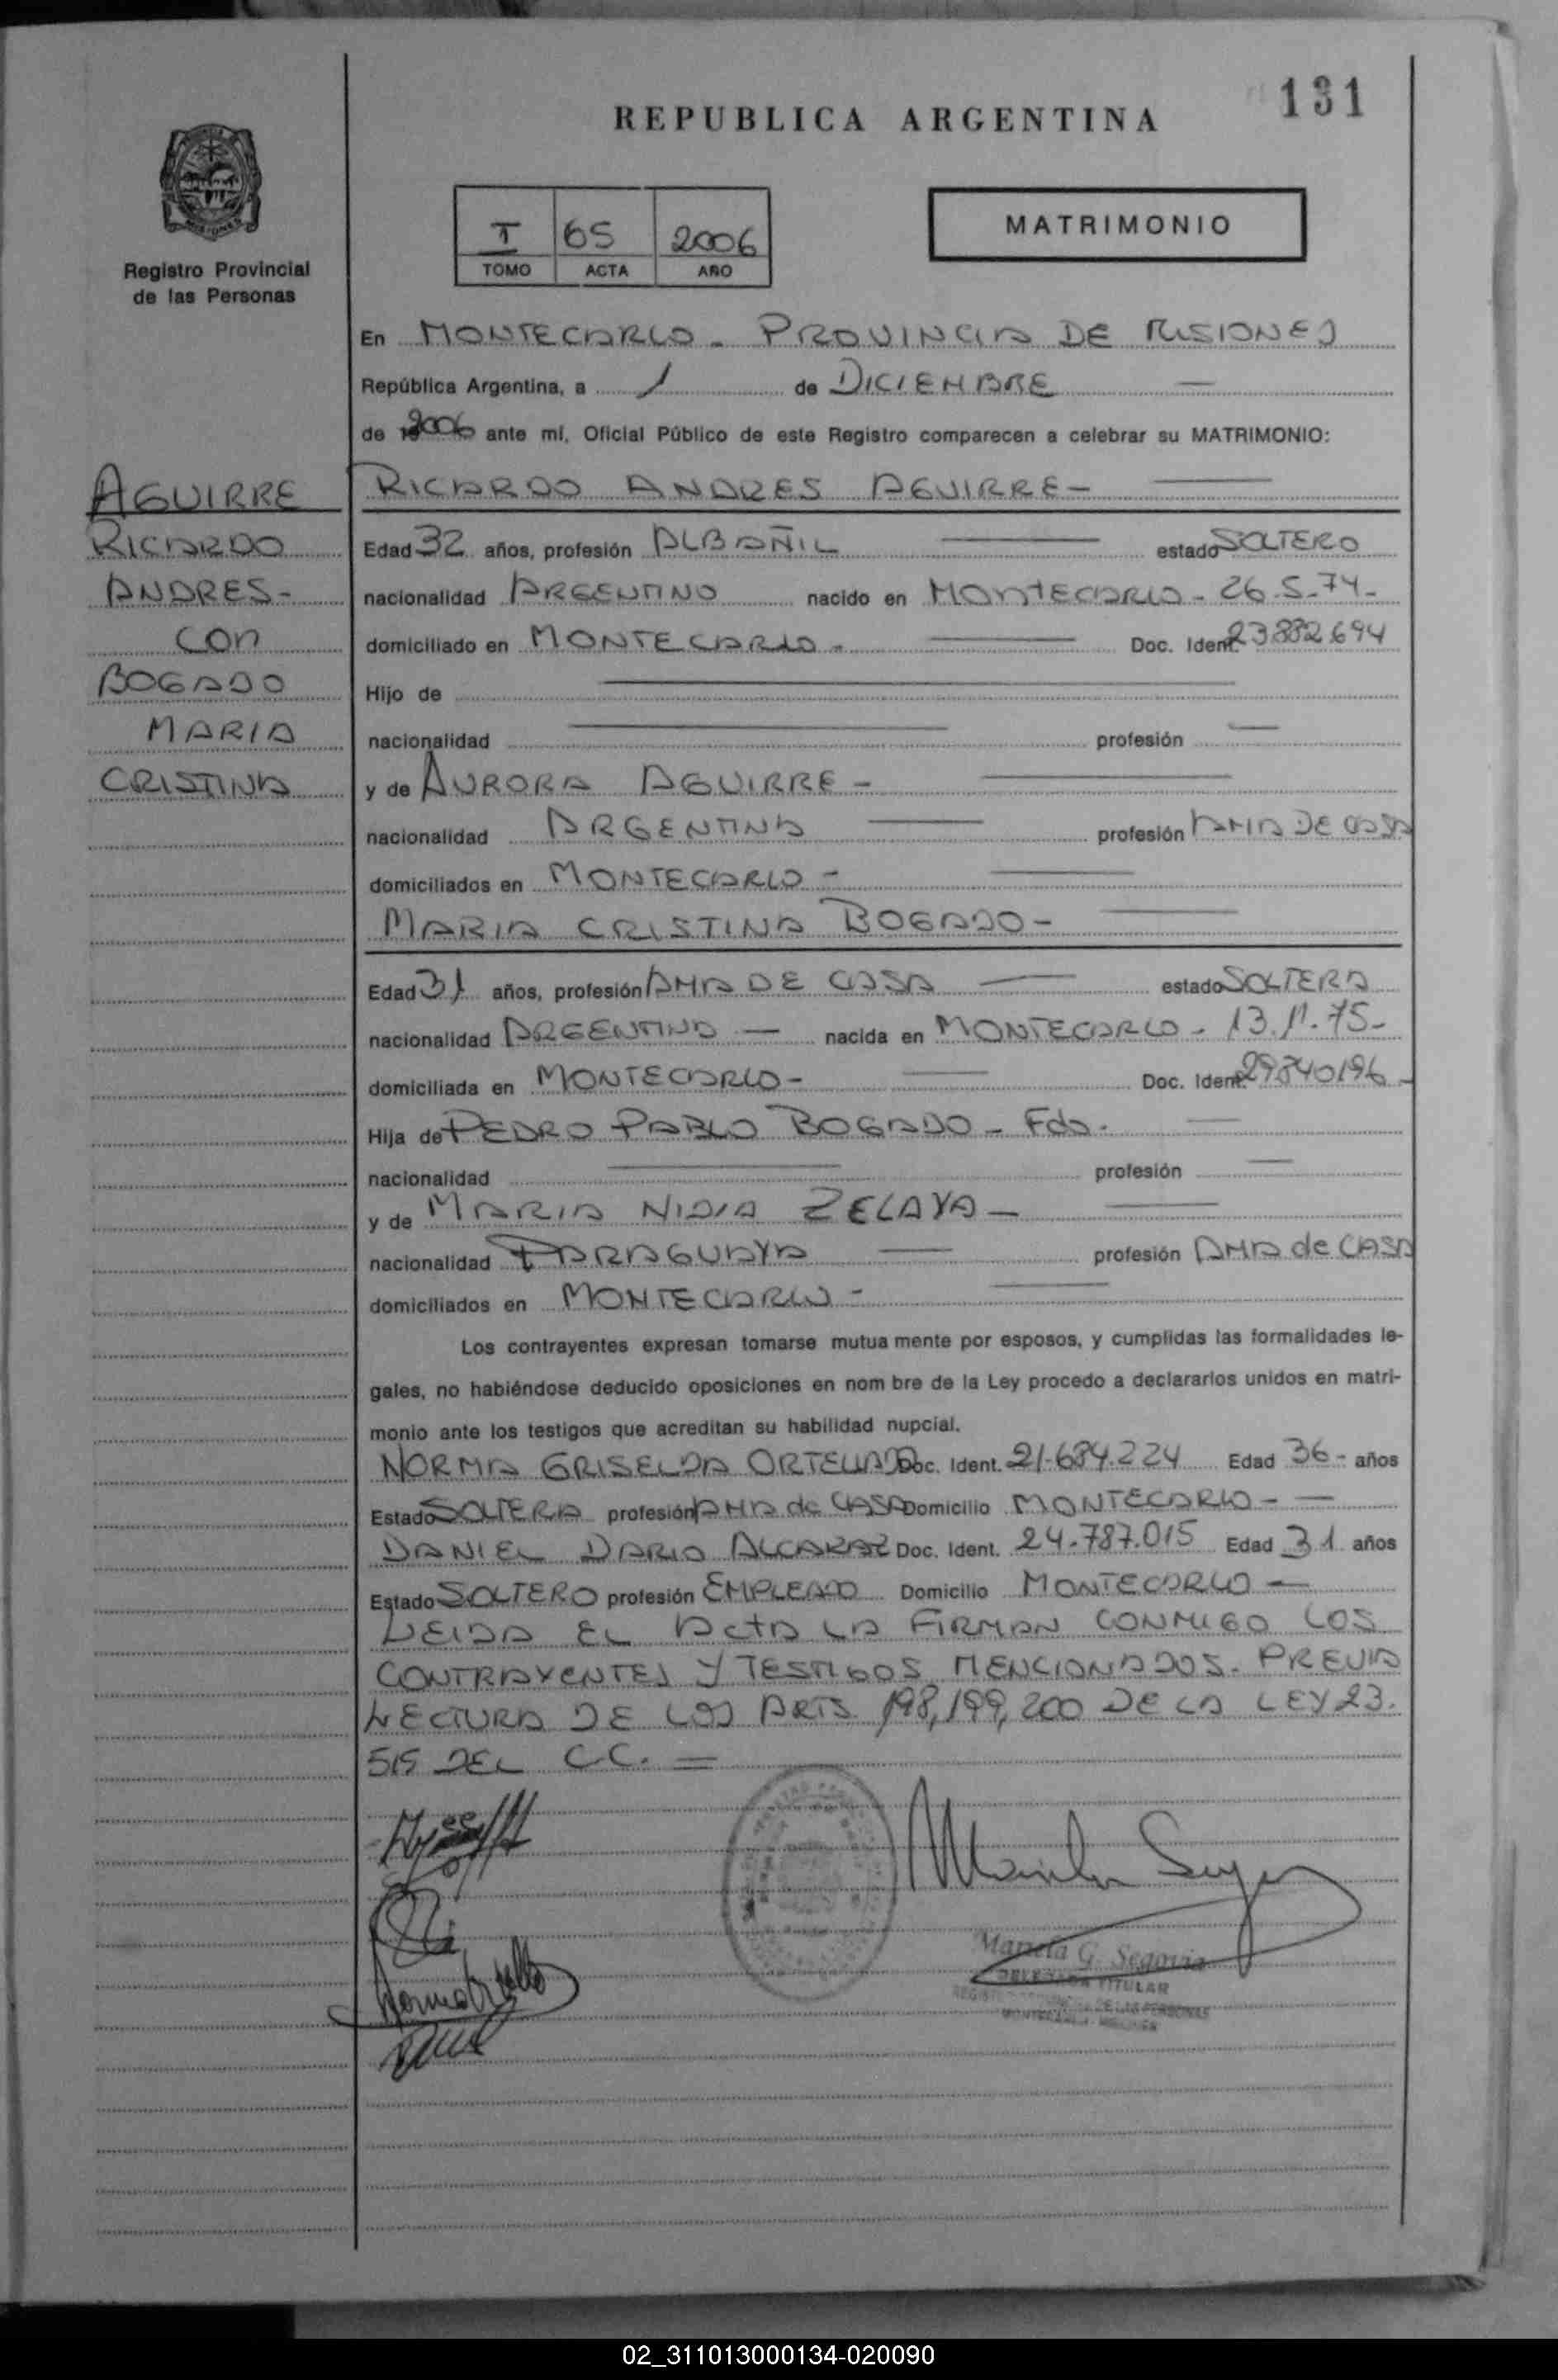 131
REPUBLICA ARGENTINA
Registro Provincial
de las Personas
I 65 2006
TOMO ACTA AÑO
MATRIMONIO
En MONTECARLO - PROVINCIA DE MISIONES
República Argentina, a 1 de DICIEMBRE
de 2006 ante mí, Oficial Público de este Registro comparecen a celebrar su MATRIMONIO:
AGUIRRE
RICARDO
ANDRES-
CON
BOGADO
MARIA
CRISTINA
RICARDO ANDRES AGUIRRE-
Edad 32 años, profesión ALBAÑIL estado SOLTERO
nacionalidad ARGENTINO nacido en MONTECARLO - 26.5.74-
domiciliado en MONTECARLO - Doc. Ident. 23.882.694
Hijo de
nacionalidad profesión
y de AURORA AGUIRRE -
nacionalidad ARGENTINA profesión AMA DE CASA
domiciliados en MONTECARLO -
MARIA CRISTINA BOGADO-
Edad 31 años, profesión AMA DE CASA estado SOLTERA
nacionalidad ARGENTINA - nacida en MONTECARLO - 13.11.75-
domiciliada en MONTECARLO- Doc. Ident. 29840196-
Hija de PEDRO PABLO BOGADO - Fdo.
nacionalidad profesión
y de MARIA NIDIA ZELAYA -
nacionalidad PARAGUAYA profesión AMA de CASA
domiciliados en MONTECARLO -
Los contrayentes expresan tomarse mutua mente por esposos, y cumplidas las formalidades le-
gales, no habiéndose deducido oposiciones en nom bre de la Ley procedo a declararlos unidos en matri-
monio ante los testigos que acreditan su habilidad nupcial.
NORMA GRISELDA ORTELLADO Doc. Ident. 21.684.224 Edad 36- años
Estado SOLTERA profesión AMA de CASA Domicilio MONTECARLO -
DANIEL DARIO ALCARAZ Doc. Ident. 24.787.015 Edad 31 años
Estado SOLTERO profesión EMPLEADO Domicilio MONTECARLO -
LEIDA EL ACTA LA FIRMAN CONMIGO LOS
CONTRAYENTES Y TESTIGOS MENCIONADOS. PREVIA
LECTURA DE LOS ARTS 198, 199, 200 DE LA LEY 23.
515 DEL C.C. =
Mariela G. Segovia
DELEGADA TITULAR
DE LAS PERSONAS
02_311013000134-020090